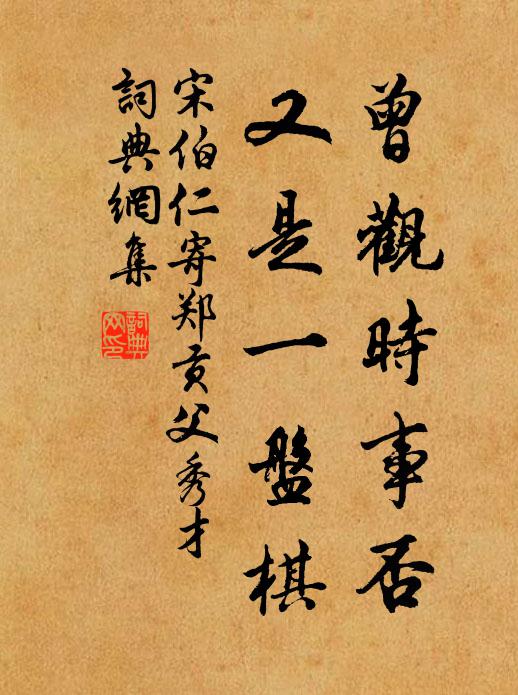 曾觀時事否
又是一盤棋
宋伯仁寄郑貢父秀才
詞典網集
詞典
网印